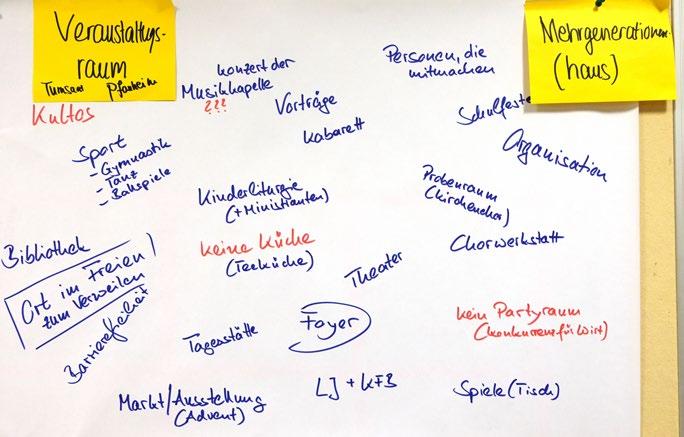 Veranstaltungs-
raum
Turnsaal Pfarrheim
Mehrgenerationen-
(haus)
Kultos
konzert der
Musikkapelle
???
Vorträge
Kabarett
Personen, die
mitmachen
Schulfeste
Organisation
Sport
- Gymnastik
- Tanz
- Ballspiele
Kinderliturgie
(+Ministranten)
Probenraum
(Kirchenchor)
Bibliothek
keine Küche
(Teeküche)
Chorwerkstatt
Ort im Freien
zum Verweilen
Theater
Barrierefreiheit
Tagesstätte
Foyer
kein Partyraum
(Konkurrenz für Wirt)
Markt/Ausstellung
(Advent)
LJ + KFB
Spiele (Tisch)